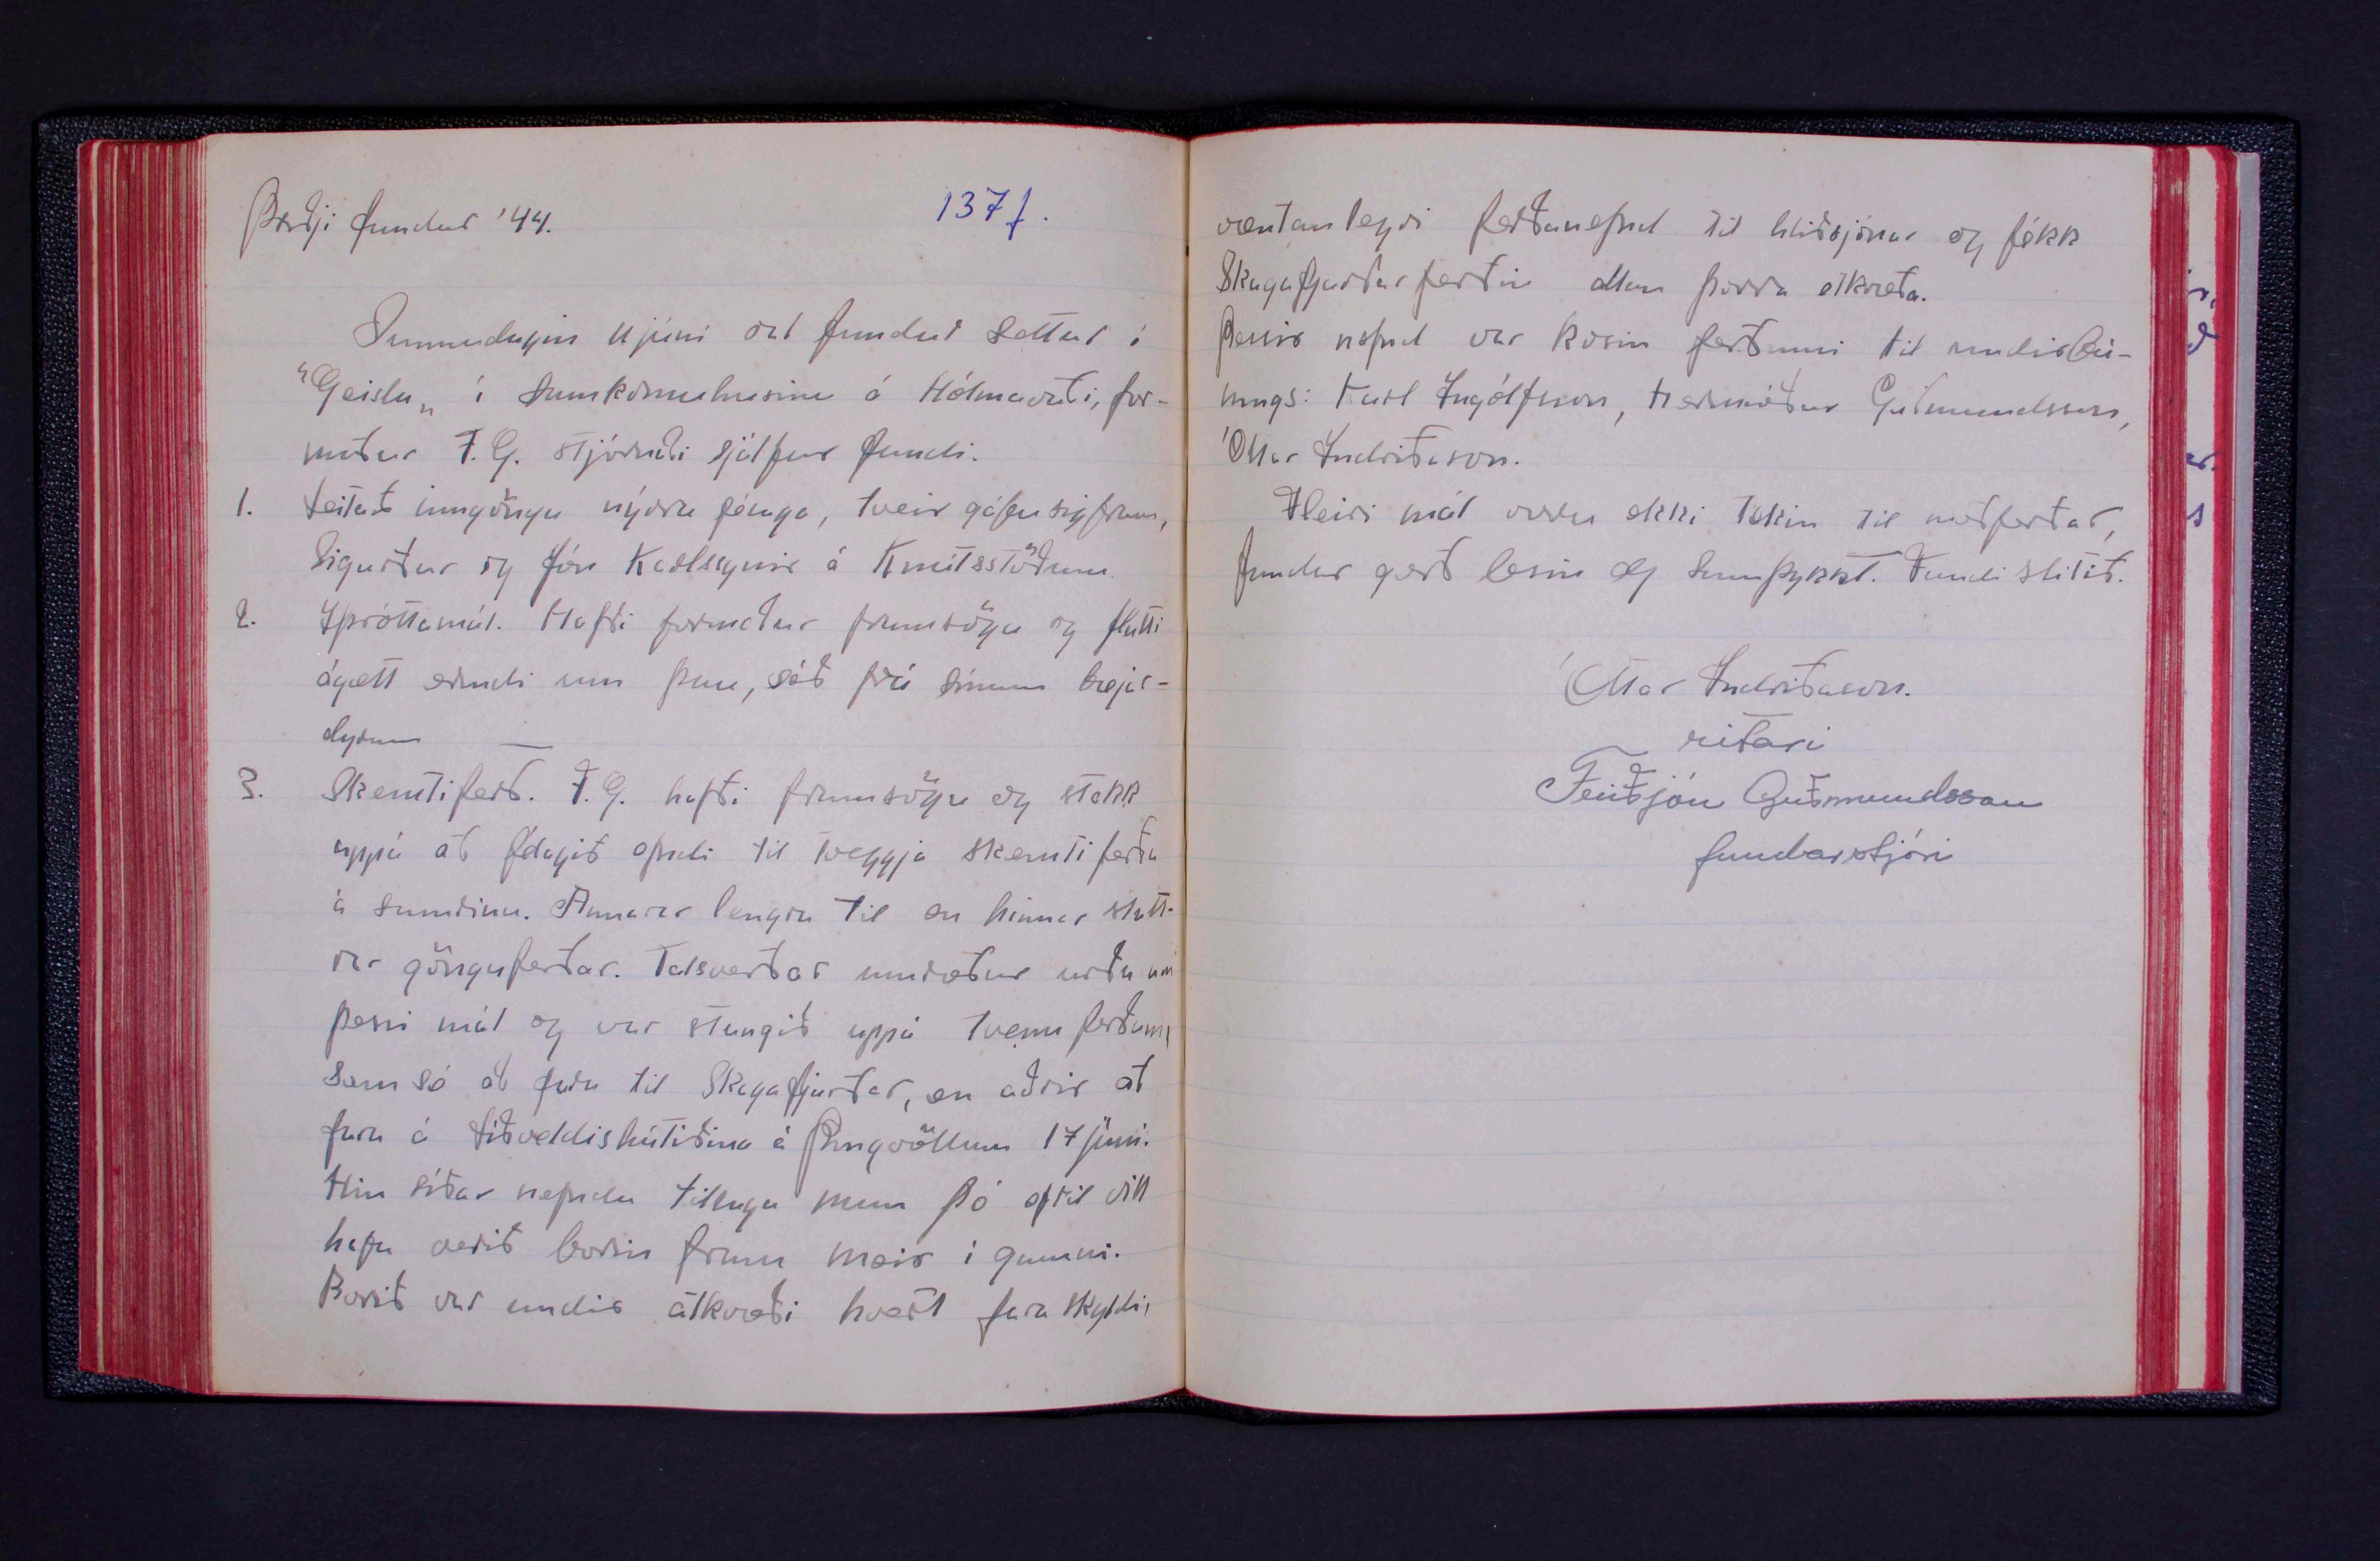 Þriðji fundur '44.
137 f.
Sunnudaginn 4 júní var fundur settur í
"Geisla„ í Samkomuhúsinu á Hólmavík, for-
maður F.G. stjórnaði sjálfur fundi.
1. Leitað inngöngu nýrra félaga, tveir gáfu sig fram,
Sigurður og Jón Karlssynir á Kmitsstöðum.
2. Íþróttamál. Hafði formaður framsögu og flutti
ágætt erindi um þau, séð frá sínum bæjar-
dyrum —
3. Skemtiferð. F.G. hafði framsögu og stakk
uppá að félagið efndi til tveggja skemtiferða
á sumrinu. Annarar lengra til en hinnar stutt-
rar gönguferðar. Talsverðar umræður urðu um
þessi mál og var stungið uppá tvenn ferðum,
sem sé að fara til Skagafjarðar, en aðrir að
fara á lýðveldishátíðina á Þingvöllum 17 júní.
Hin síðar nefnda tillaga mun þó eftil vill
hafa verið borin fram meir í gamni.
Borið var undir atkvæði hvert fara skyldi,
væntanlegri ferðanefnd til hliðsjónar og fékk
Skagafjarðarferðin allan þorra atkvæða.
Þessir nefnd var kosin ferðinni til undirbú-
nings: Karl Ingólfsson, Hermóður Guðmundsson,
Óttar Indriðason.
Fleiri mál voru ekki tekin til meðferðar,
fundar gerð lesin og samþykkt. Fundi slitið.
Óttar Indriðason.
ritari
Friðjón Guðmundsson
fundarstjóri